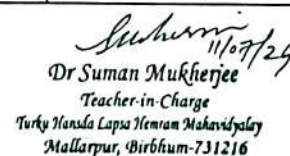 11/07/24
Dr Suman Mukherjee
Teacher-in-Charge
Turku Hansda Lapsa Hemram Mahavidyalay
Mallarpur, Birbhum-731216